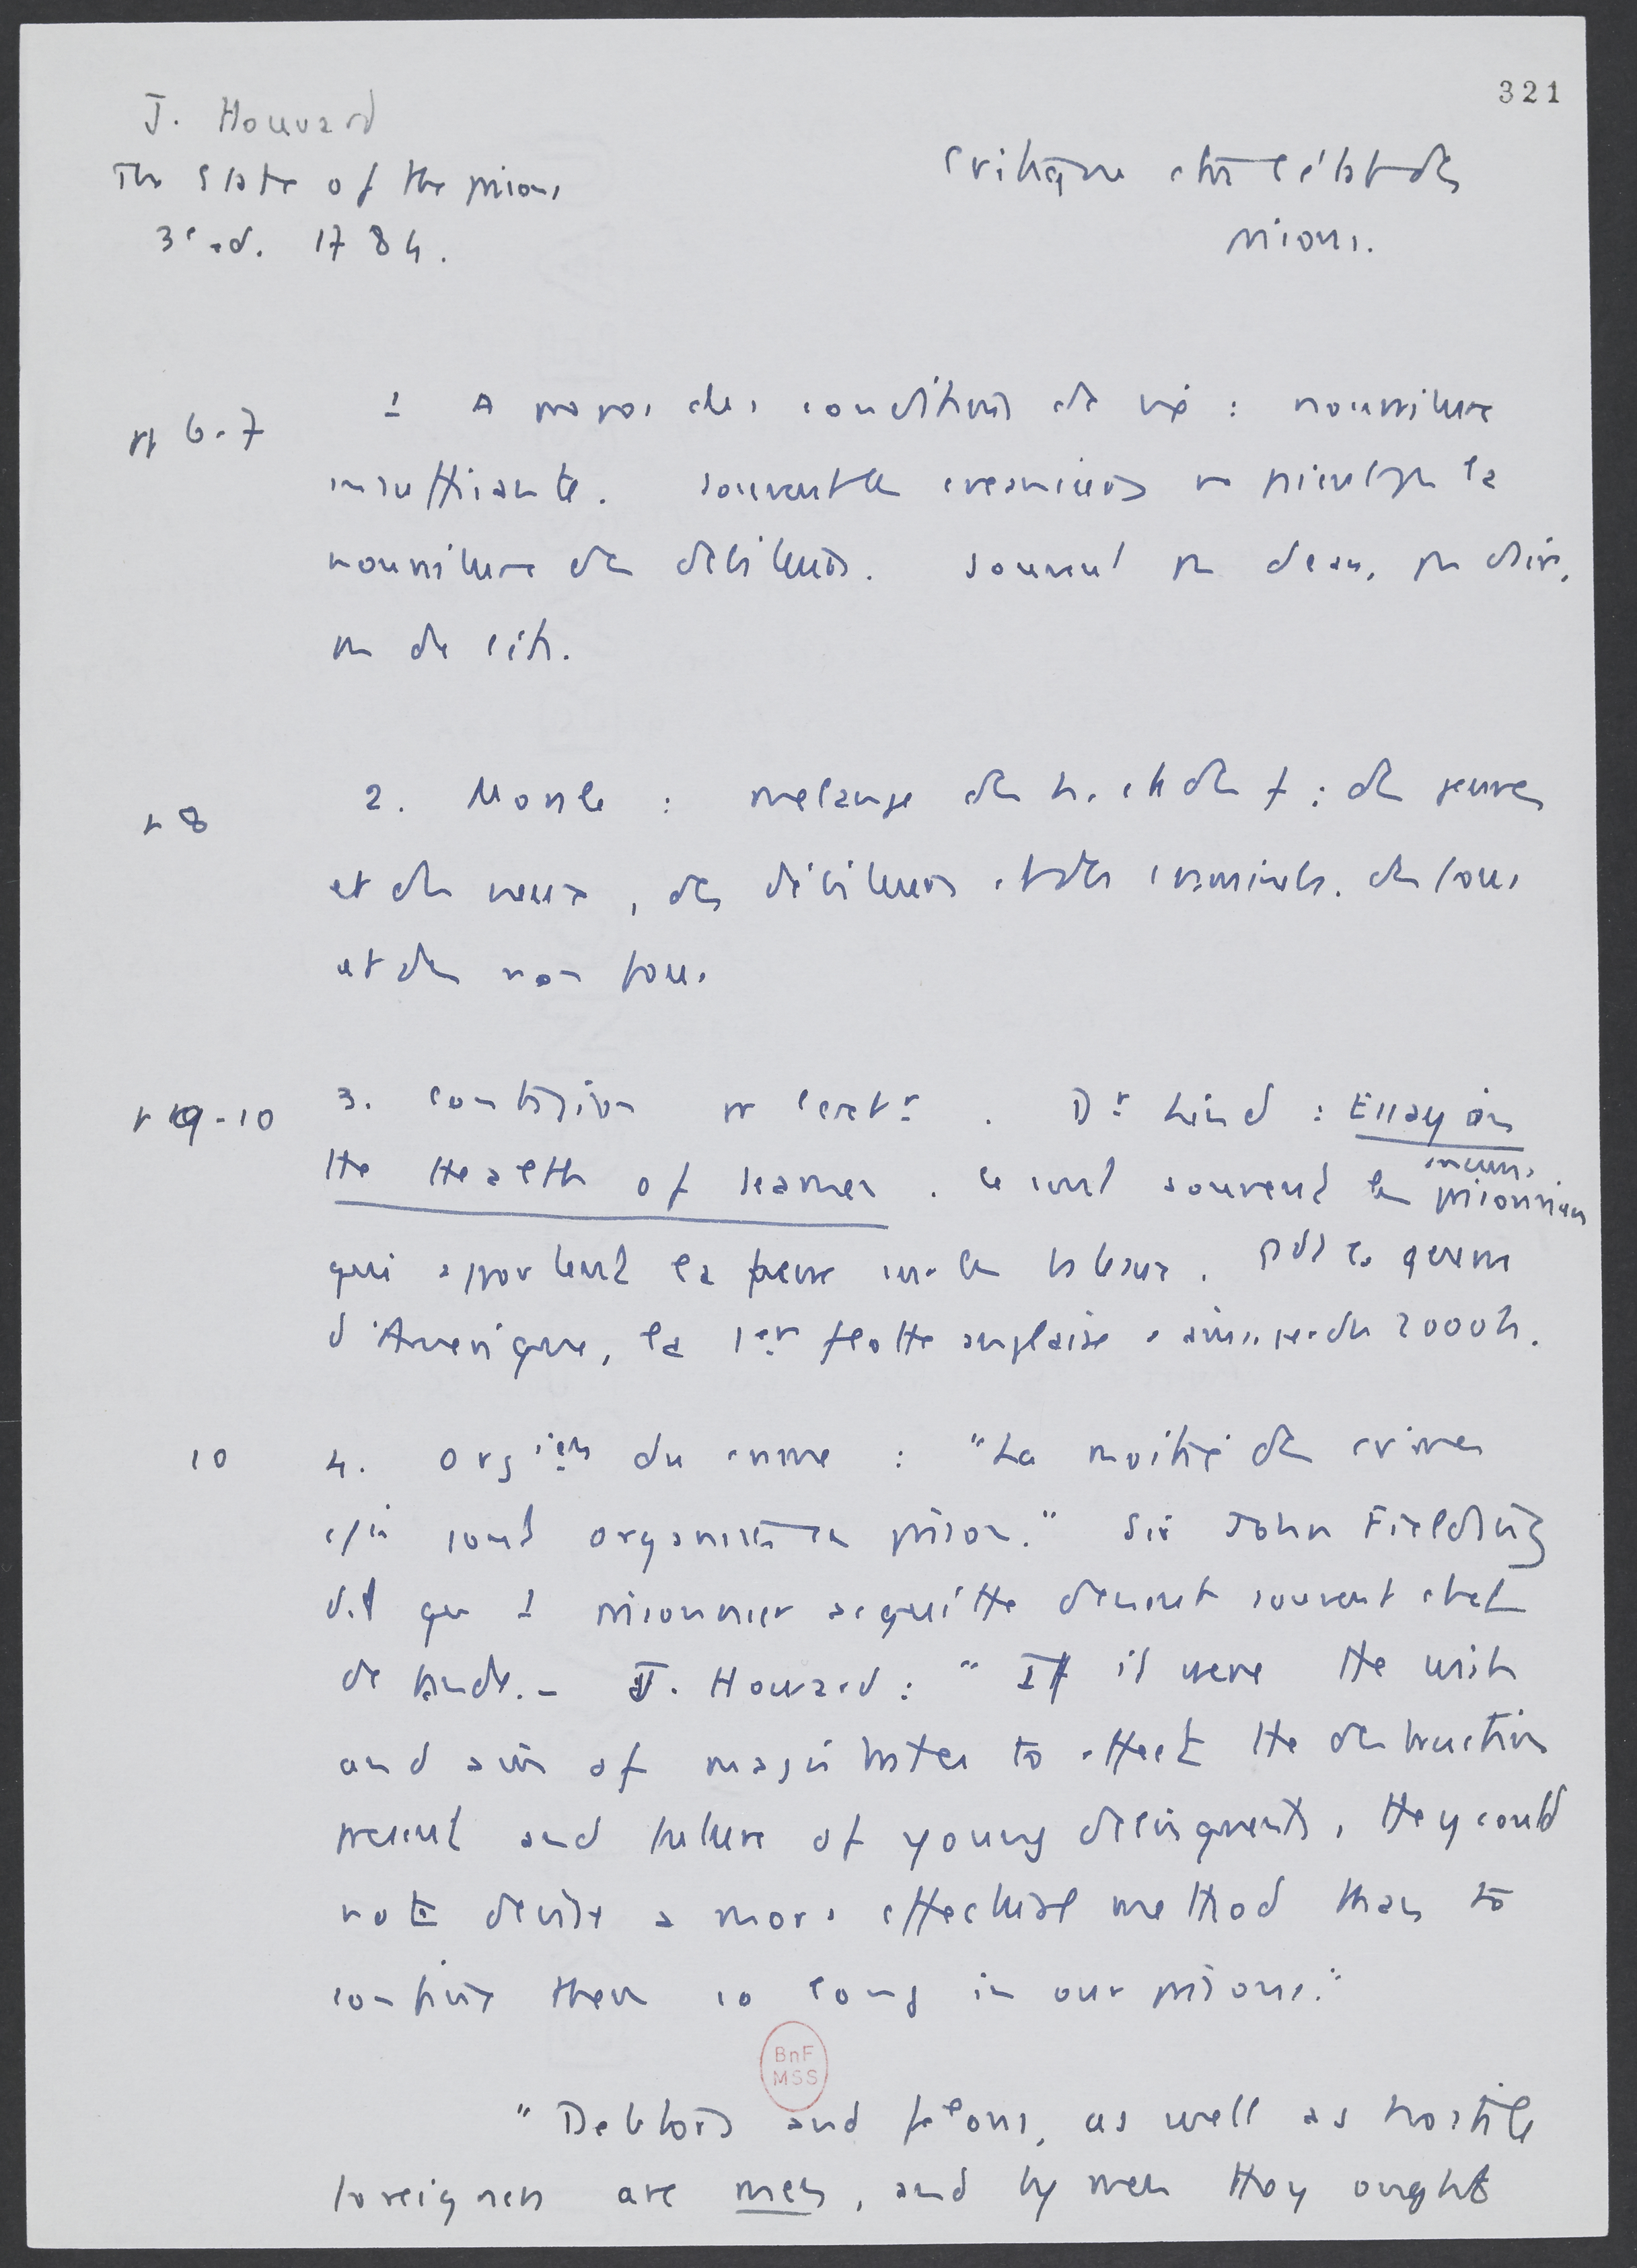 321
J. Howard
The State of the prisons
3e ed. 1784.
Critique de l'état des
prisons.
pp 6-7
1 A propos des conditions de vie : nourriture
insuffisante. Souvent les créanciers ne paient pas la
nourriture des débiteurs. Souvent pas d'eau, pas d'air,
pas de lits.
p 8
2. Morale : mélange des h. et des f ; des jeunes
et des vieux, des débiteurs et des criminels. des fous
et des non fous
p 9-10
3. Contagion pr l'extr . Dr Lind : Essay on
the Health of seamen . Ce sont souvent les anciens prisonniers
qui apportent la fièvre sur les bateaux. Pdt la guerre
d'Amérique, la 1er flotte anglaise a ainsi perdu 2000 h.
10
4. Orgion du crime : "La moitié des crimes
sont organisés en prison." Sir John Fielding
dit que 1 prisonnier acquitté devient souvent chef
de bande. - J. Howard : "If it were the wish
and aim of magistrates to effect the destruction
present and future of young delinquents, they could
not devise a more effectual method than to
confine them so long in our prisons."
BnF
MSS
"Debtors and felons, as well as hostile
foreigners are men, and by men they ought